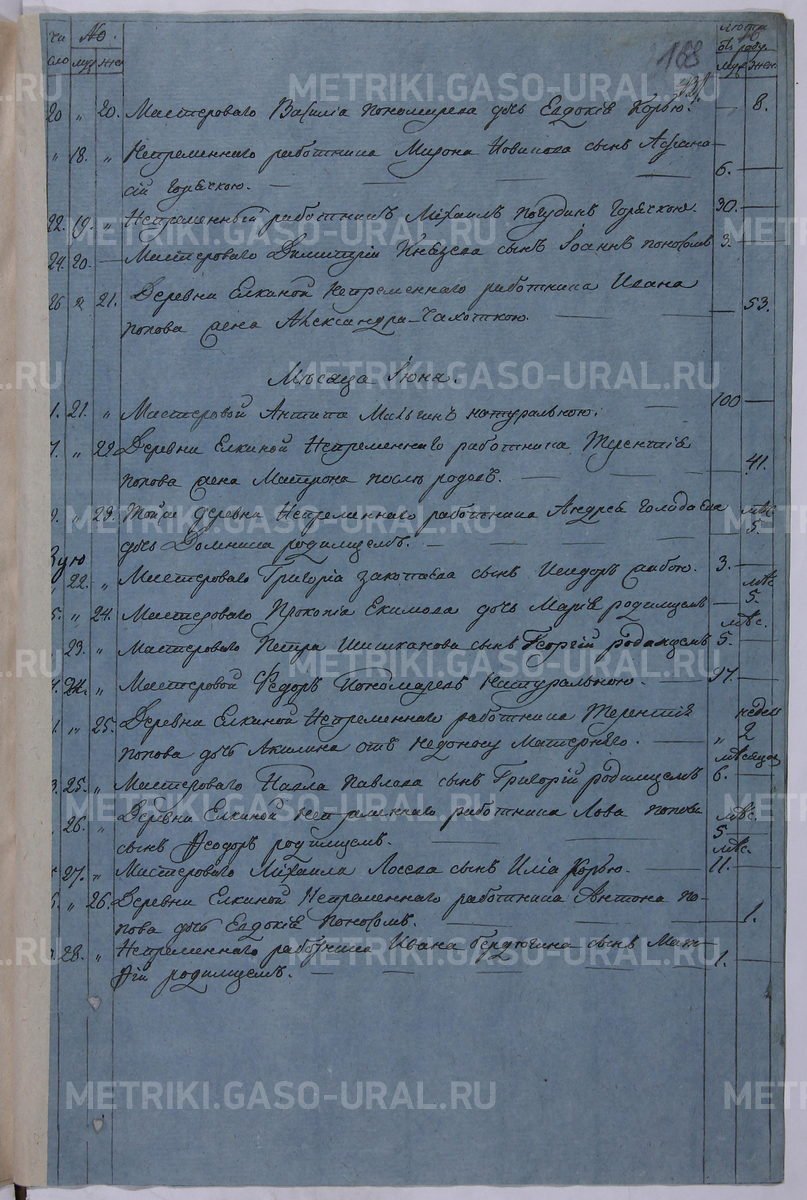 чи No. лѣта
сло муж жен бѣ роду
муж. жен.
168
20 „ 20. Мастероваго Василiа Пономарева дочь Евдокiѣ Корью. — 8.
„ 18. „ Непременнаго работника Мирона Новикова сынъ Афана-
сiй Горячкою. — 6.
22. 19. „ Непременный работникъ Мiхаилъ Погудинъ Горячкою. 30. —
24. 20. — Мастероваго Димитрiй Князева сынъ Iоаннъ поносомъ 3. —
26 „ 21. Деревни Елкиной Непременнаго работника Ивана
Попова жена Александра Чахоткою. — 53.
Мѣсяца Iюня.
1. 21. „ Мастеровой Антипа Мальгинъ натуральною. 100 —
7. „ 22. Деревни Елкиной Непременнаго работника Терентiѣ
Попова жена Матрона послѣ родовъ. — 41.
9. „ 23. Той же деревни Непременнаго работника Андрея
дочь Домника родимцемъ. — мѣс. 5.
22. „ Мастероваго Григорiа сынъ Исидоръ 3. —
5. „ 24. Мастероваго Прокопiа Екимова дочь Марiѣ родимцемъ — мѣс 5.
23. „ Мастероваго Петра Шишканова сынъ Георгiй родимцемъ мѣс. 5. —
24. „ Мастеровой Федоръ Пономаревъ Натуральною. 97. —
„ 25. Деревни Елкиной Непременнаго работника Терентiѣ
Попова дочь Акилина отъ недоносу Матернѣго. — „ недел 2
25. „ Мастероваго Павла Павлова сынъ Григорiй родимцемъ мѣсяцов 6. —
26. „ Деревни Елкиной Непременнаго работника Лова Попова
сынъ Ѳеодоръ родимцемъ. мѣс. 5 —
27. „ Мастероваго Мiхаила Лосева сынъ Илiа Корью. мѣс. 11. —
„ 26. Деревни Елкиной Непременнаго работника Антона По-
пова дочь Евдокiѣ Поносомъ. — 1.
28. „ Непременнаго работника Ивана Бердюгина сынъ Мат-
ѳiй родимцемъ. 1. —
METRIKI.GASO-URAL.RU